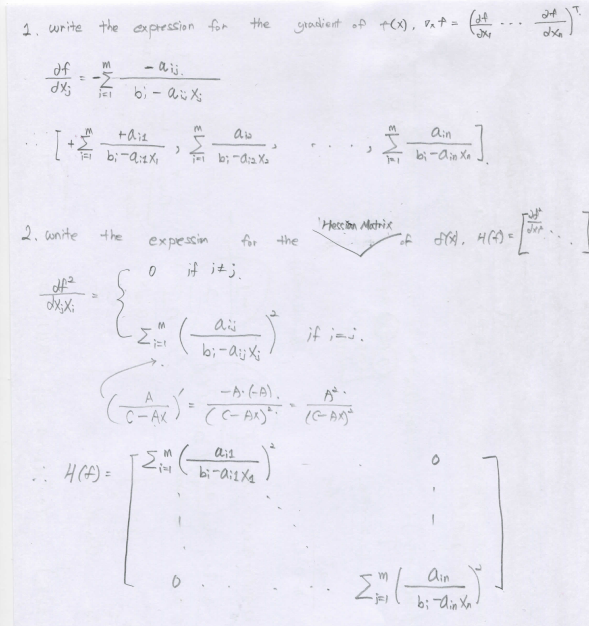 1. write the expression for the gradient of f(x), ∇ₓf = (∂f/∂x₁ ··· ∂f/∂xₙ)ᵀ.
∂f/dxⱼ = -∑ᵢ₌₁ᵐ (-aᵢⱼ)/(bᵢ - aᵢⱼxⱼ)
∴ [+∑ᵢ₌₁ᵐ (+aᵢ₁)/(bᵢ-aᵢ₁x₁), ∑ᵢ₌₁ᵐ aᵢ₂/(bᵢ-aᵢ₂x₂), ····, ∑ᵢ₌₁ᵐ aᵢₙ/(bᵢ-aᵢₙxₙ)].
2. write the expression for the Hessian Matrix of f(x). H(f) = [∂f²/dx₁² ··· ]
df²/dxⱼxᵢ = { 0 if i≠j.
∑ᵢ₌₁ᵐ (aᵢⱼ/(bᵢ-aᵢⱼxⱼ))² if i=j.
(A/(C-AX))' = (-A·(-A))/(C-AX)² = A²/(C-AX)²
∴ H(f) = [ ∑ᵢ₌₁ᵐ (aᵢ₁/(bᵢ-aᵢ₁x₁))² · · 0
0 · · · · ∑ᵢ₌₁ᵐ (aᵢₙ/(bᵢ-aᵢₙxₙ))² ]